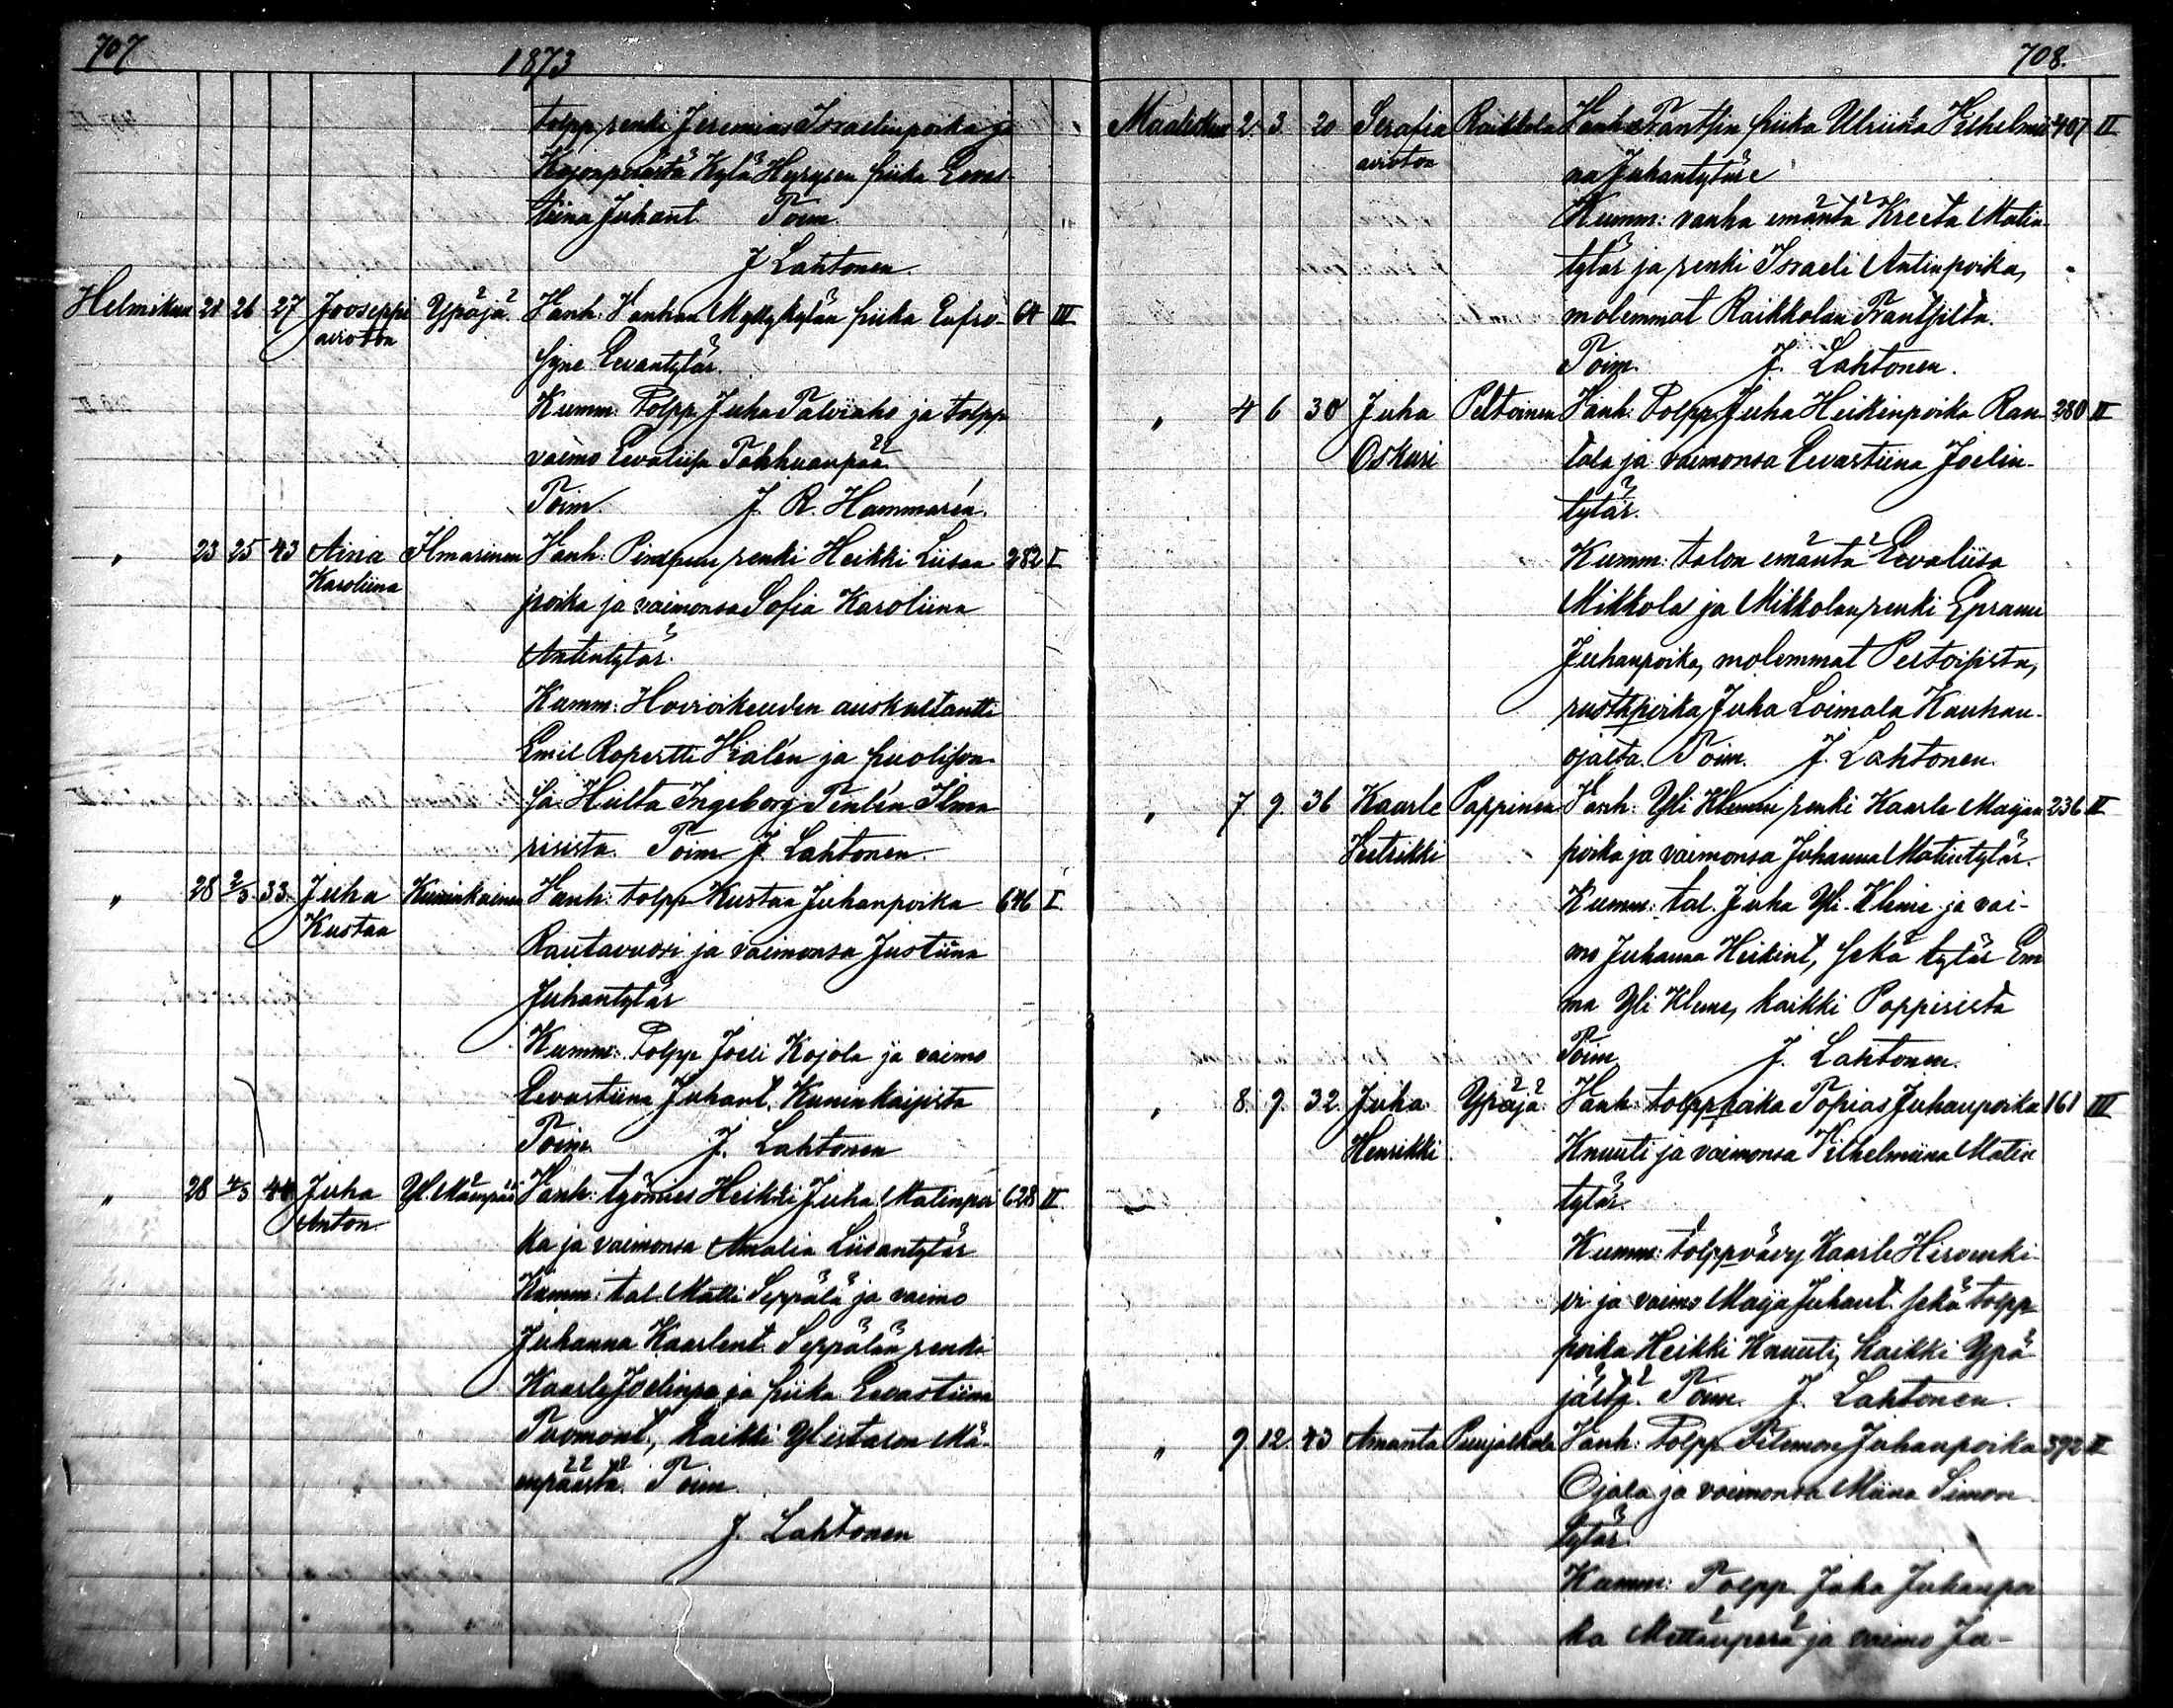 707
1873
tolpp. renki Jeremias Israelinpoika ja
Kylä Hyrysen piika Eevas-
tiina Juhant. Toim.
J. Lahtonen.
Helmikuu 21 26 27 Jooseppi Ypäjä. Vanh: Vanhan Myllykylän piika Eufro- 64 III
avioton
syne Eevantytär.
Kumm: Tolpp. Juha Talviaho ja tolpp.
vaimo Eevaliisa Tahkuanpää.
Toim. J. R. Hammarén.
" 23 25 43 Aina Ilmarinen Vanh: renki Heikki Liisan 282 I
Karoliina
poika ja vaimonsa Sofia Karoliina
Antintytär.
Kumm: Hovioikeuden auskultantti
Emil Ropertti Hialén ja puolison-
sa Hilta Ingeborg Ilma-
risista. Toim. J. Lahtonen.
" 28 2/3 33. Juha Kuninkainen Vanh: tolpp. Kustaa Juhanpoika 646 I
Kustaa
Rautavuori ja vaimonsa Justiina
Juhantytär
Kumm: Tolpp. Joeli Kojola ja vaimo
Eevastiina Juhant. Kuninkaisista
Toim. J. Lahtonen
" 28 4/3 44 Juha Yl. Mäenpää Vanh: työmies Heikki Juha Matinpoi 628 II
Anton.
ka ja vaimonsa Amalia Liisantytär
Kumm: tal. Matti Seppälä ja vaimo
Juhanna Kaarlent. Seppälän renki
Kaarle Joelinpo. ja piika Eevastiina
Tuomont., kaikki Ylistalon Mä-
enpäästä. Toim.
J. Lahtonen
708.
Maaliskuu 2. 3. 20 Serafia Raikkola Vanh: Franssin piika Ulriika Vilhelmii- 407 II
avioton
na Juhantytär
Kumm: vanha emäntä Kreeta Matin-
tytär ja renki Israeli Antinpoika,
molemmat Raikkolan Franssilta.
Toim. J. Lahtonen.
" 4 6 30 Juha Peltoinen Vanh: Tolpp. Juha Heikinpoika Ran- 280 II
Oskari
tala ja vaimonsa Eevastiina Joelin-
tytär.
Kumm: talon emäntä Eevaliisa
Mikkola ja Mikkolan renki Epraim
Juhanpoika, molemmat Peltoisista,
rusth.poika Juha Loimala Kauhan-
ojalta. Toim. J. Lahtonen.
" 7. 9. 36 Kaarle Pappinen Vanh: Yli Klemi renki Kaarle Maijan 236 II
Vetrikki
poika ja vaimonsa Johanna Matintytär.
Kumm: tal. Juha Yli-Kleme ja vai-
mo Juhanna Heikint., sekä tytär Em
ma Yli Kleme, kaikki Pappisista
Toim. J. Lahtonen.
" 8. 9. 32. Juha Ypäjä. Vanh: tolpp.poika Topias Juhanpoika 161 III
Henrikki.
Knuuti ja vaimonsa Vilhelmiina Matin
tytär.
Kumm: tolppvävy Kaarle Hirvenki-
vi ja vaimo Maija Juhant. sekä tolpp.
poika Heikki Knuuti, kaikki Ypä-
jästä. Toim. J. Lahtonen.
" 9. 12. 43 Amanta Puujalkala Vanh: Tolpp. Filemon Juhanpoika 392 II
Ojala ja vaimonsa Miina Simon
tytär.
Kumm: Tolpp. Juha Juhanpoi
ka Mettänperä ja vaimo Ju-